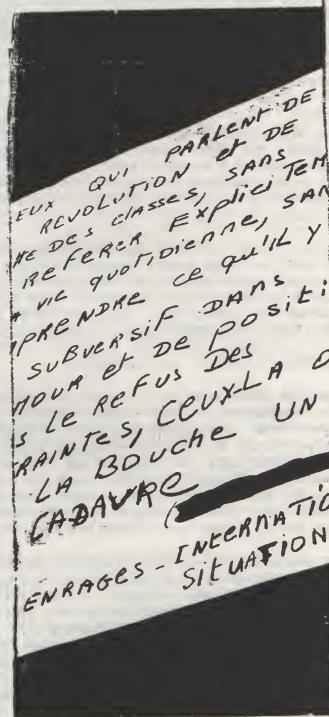 EUX QUI PARLENT DE
REVOLUTION et DE
TTE DES classes, SANS
REFERER EXPLICITEM
A VIE QUOTIDIENNE, SAN
MPRENDRE CE qu'IL Y
SUBVERSIF DANS
MOUR et DE positi
S LE REFUS DES
RAINTES, CEUX-LA O
LA BOUCHE UN
CADAVRE
ENRAGES - INTERNATIO
SITUATION